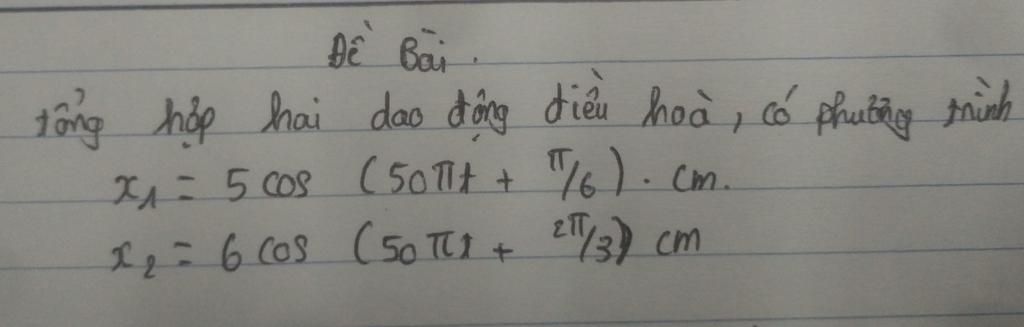 Đề Bài.
tổng hợp hai dao động điều hoà, có phương trình
x₁ = 5 cos (50πt + π/6). cm.
x₂ = 6 cos (50πt + 2π/3) cm